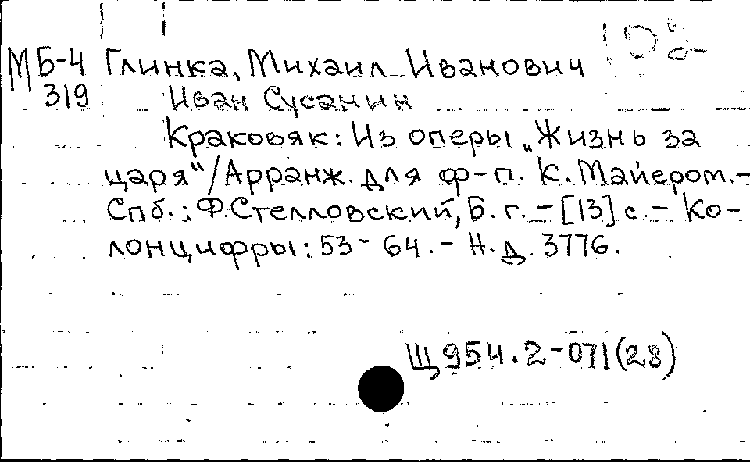 МБ-4 Глинка, Михаил Иванович
319 Иван Сусанин
Краковяк: Из оперы „Жизнь за
царя“/Арранж. для ф-п. К. Майером.-
Спб.: Ф. Стелловский, Б. г. - [13] с. - Ко-
лонцифры: 53-64. - Н. д. 3776.
Щ954.2-071(28)